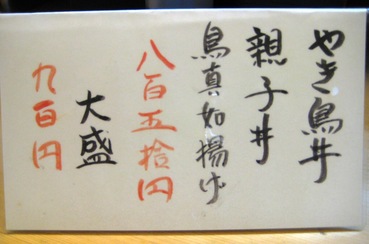 やき鳥丼
親子丼
鳥真如揚げ
八百五拾円
大盛
九百円